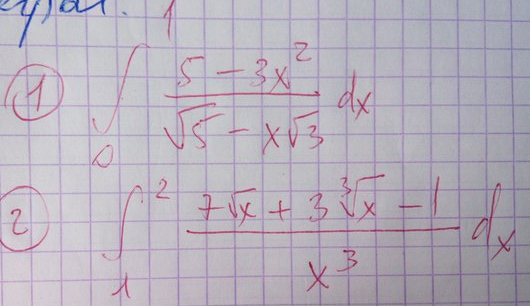 ① ∫₀¹ (5 - 3x²)/(√5 - x√3) dx
② ∫₁² (7√x + 3∛x - 1)/x³ dx